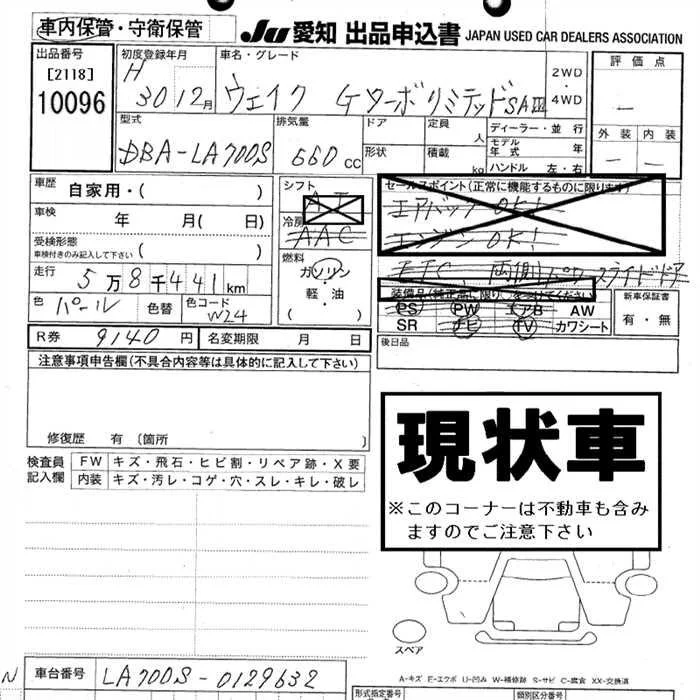 車内保管・守衛保管
JU 愛知 出品申込書 JAPAN USED CAR DEALERS ASSOCIATION
出品番号
[2118]
10096
初度登録年月
H 30 12月
車名・グレード
ウェイク Gターボリミテッド SAⅢ
2WD
・
4WD
評価点
—
外装 内装
— —
型式
DBA-LA700S
排気量
660 CC
ドア
形状
定員 人
積載 kg
ディーラー・並行
モデル年式 年
ハンドル 左・右
車歴
自家用・( )
車検
年 月( 日)
受検形態
車検付きのみ記入して下さい ( )
走行
5万8千441km
色
パール
色替
色コード
W24
シフト
冷房
AAC
燃料
ガソリン
・
軽・油
( )
セールスポイント(正常に機能するものに限ります)
エアバックOK!
エンジンOK!
ETC 両側パワースライドドア
装備品(純正常に限り○をつけてください)
PS PW エアB AW
SR ナビ TV カワシート
新車保証書
有・無
R券 9140円
名変期限 月 日
後日品
注意事項申告欄(不具合内容等は具体的に記入して下さい)
修復歴 有〔箇所 〕
検査員
記入欄
FW キズ・飛石・ヒビ割・リペア跡・X要
内装 キズ・汚レ・コゲ・穴・スレ・キレ・破レ
現状車
※このコーナーは不動車も含み
ますのでご注意下さい
スペア
A-キズ E-エクボ U-凹み W-補修跡 S-サビ C-腐食 XX-交換済
N
車台番号
LA700S-0129632
形式指定番号
類別区分番号